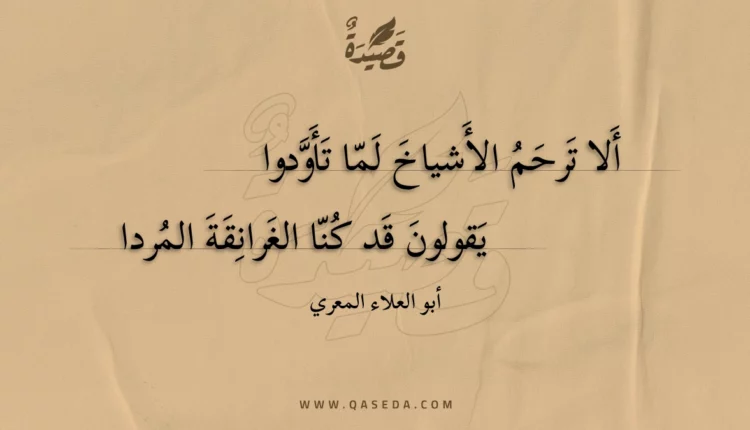 قَصِيْدَةٌ
أَلا تَرحَمُ الأَشياخَ لَمّا تَأَوَّدوا
يَقولونَ قَد كُنّا الغَرانِقَةَ المُردا
أبو العلاء المعري
WWW.QASEDA.COM